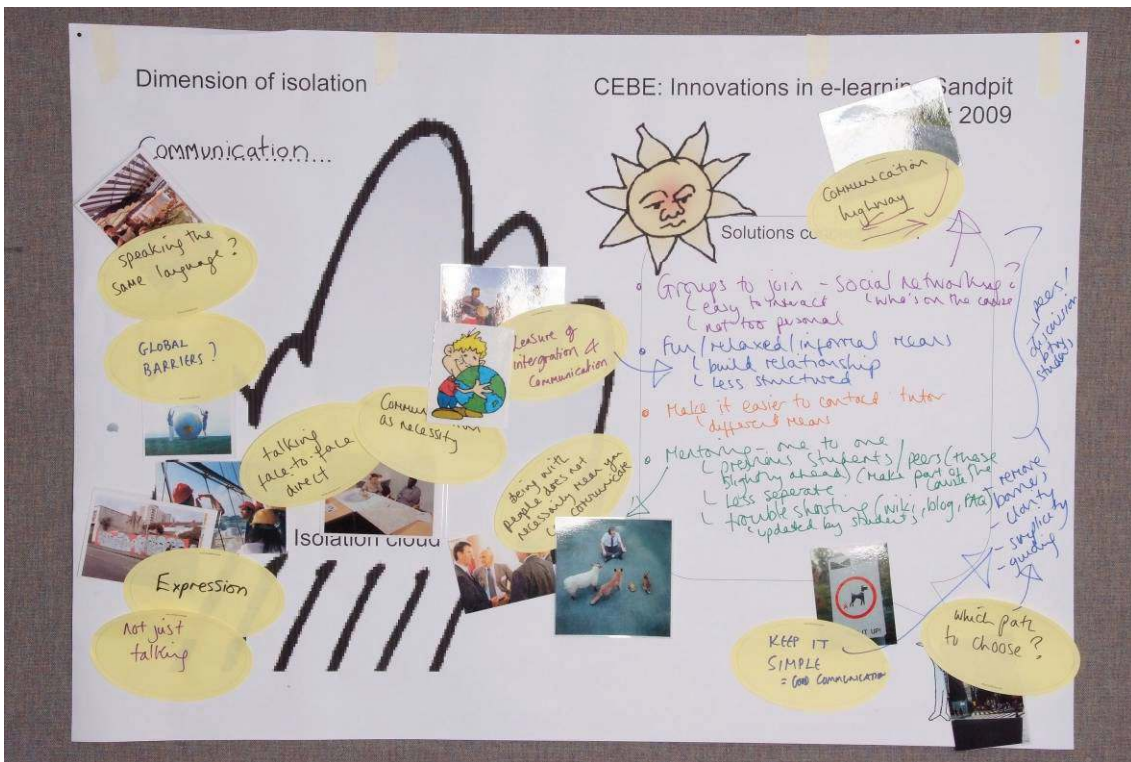 Dimension of isolation
CEBE: Innovations in e-learning Sandpit
2009
Communication...
speaking the
same language?
GLOBAL
BARRIERS?
talking
face-to-face
direct
as necessity
Isolation cloud
Expression
not just
talking
intergration &
communication
being with
people does not
necessarily mean you
communicate
Communication
highway
Solutions
• Groups to join - social networking?
easy to interact
who's on the course
not too personal
• Fun/relaxed/informal means
build relationship
less structured
• Make it easier to contact tutor
different means
• Mentoring - one to one
previous students/peers (those
slightly ahead) (Make part of the
course)
less seperate
trouble shooting (wiki, blog, FAQ)
updated by students
- peers!
discussion
by
students
- remove
barriers
- clarity
- simplicity
- guiding
IT UP!
KEEP IT
SIMPLE
= GOOD COMMUNICATION
which path
to choose?